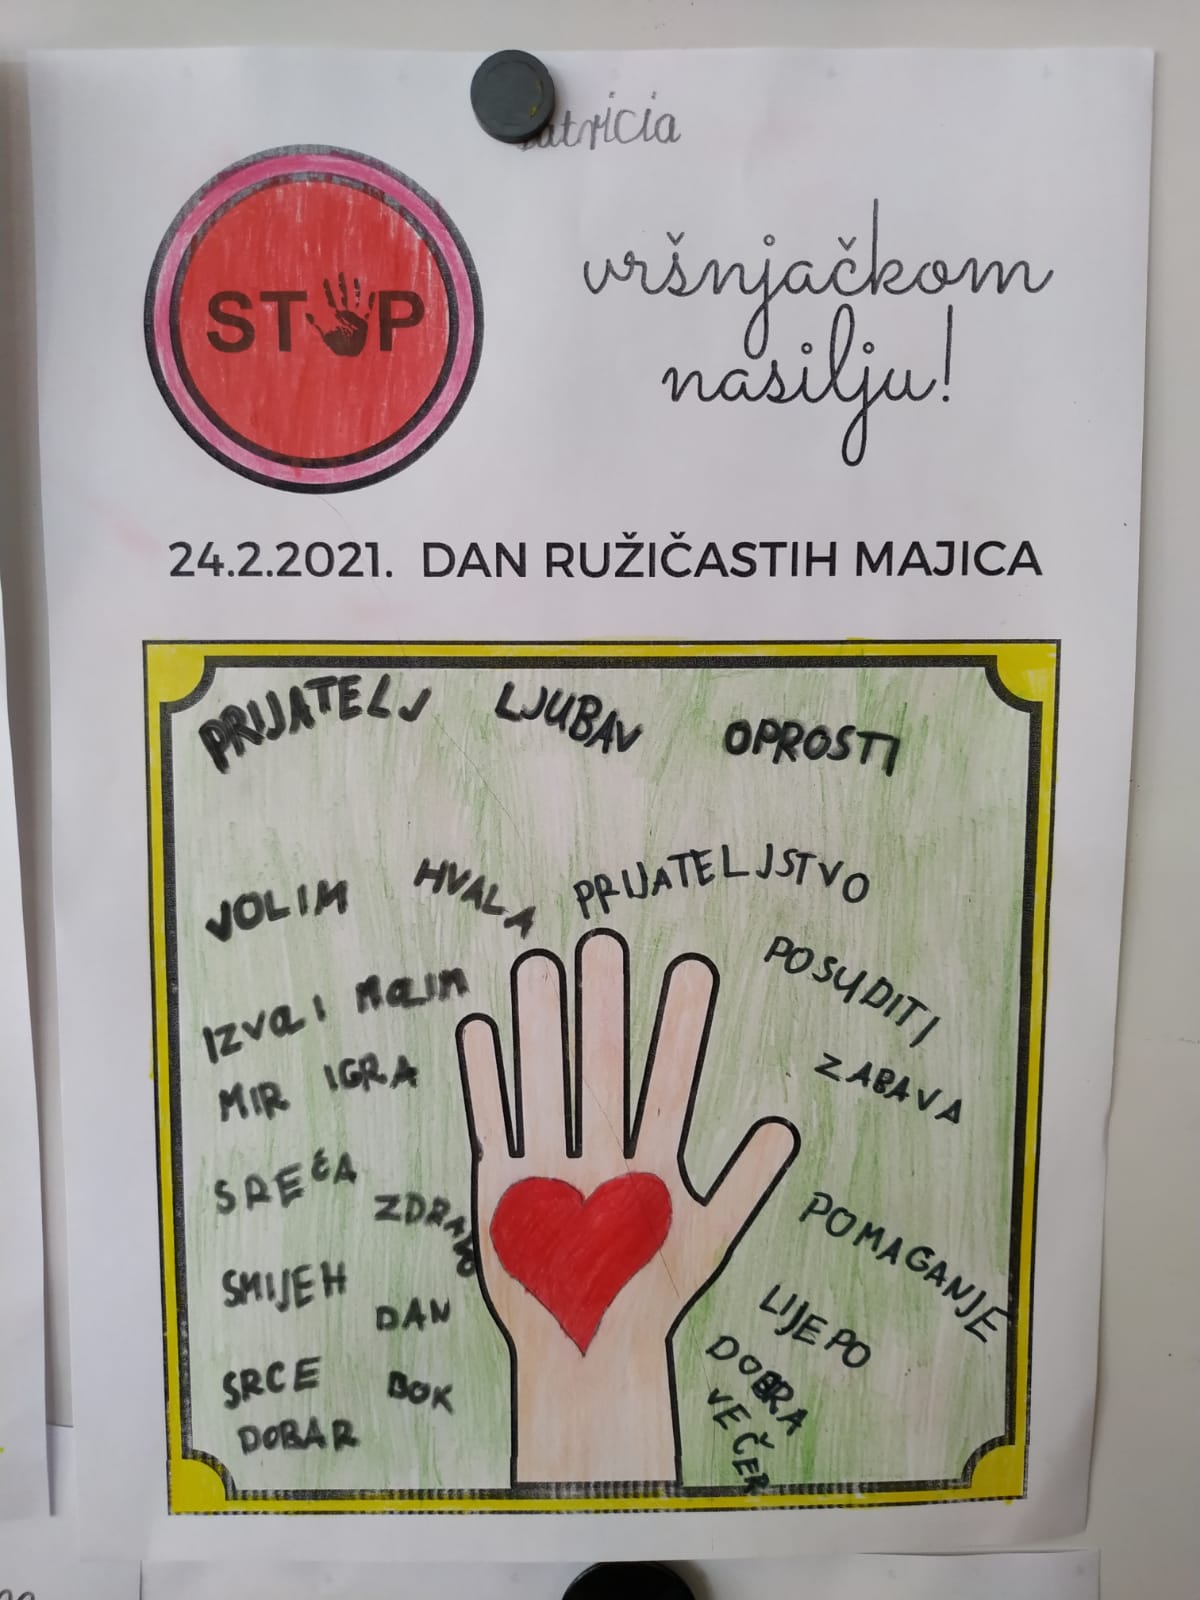 atricia
STOP
vršnjačkom
nasilju!
24.2.2021. DAN RUŽIČASTIH MAJICA
PRIJATELJ LJUBAV OPROSTI
VOLIM HVALA PRIJATELJSTVO
POSUDITI
IZVOLI MOLIM
ZABAVA
MIR IGRA
SREĆA
ZDRAVO
POMAGANJE
SMIJEH
DAN
LIJEPO
SRCE BOK
DOBRA
VEČER
DOBAR